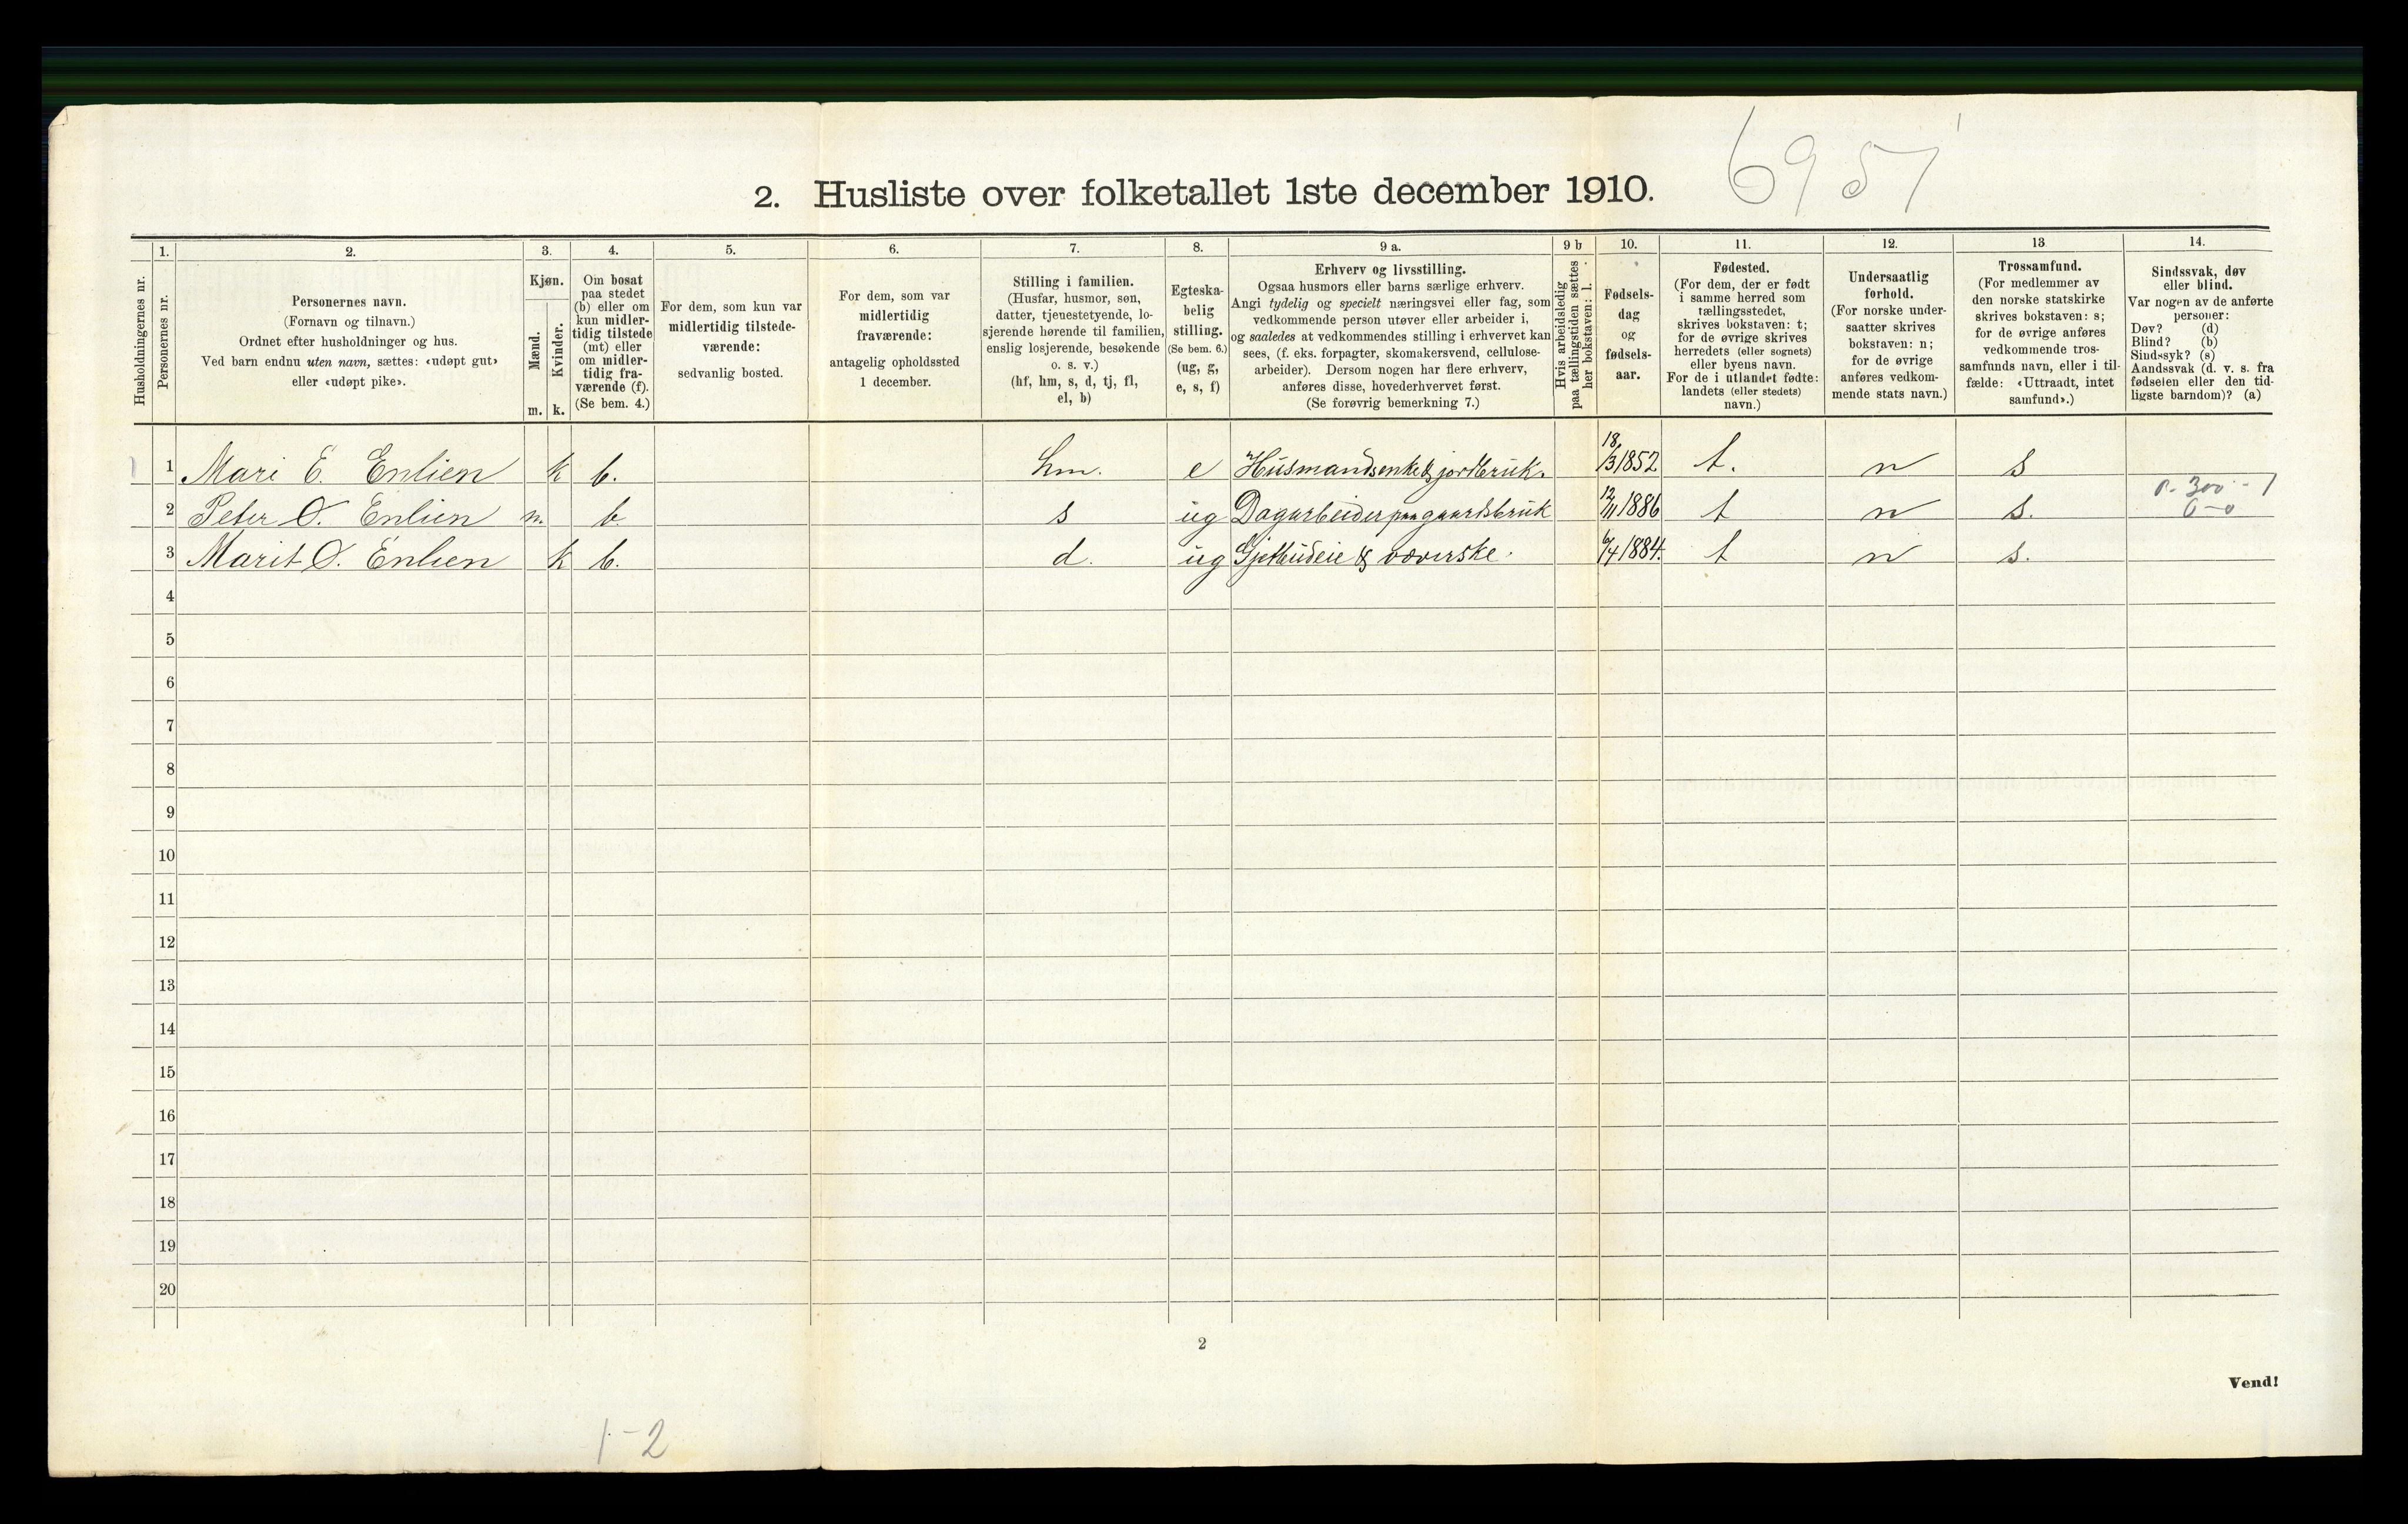 6951
2. Husliste over folketallet 1ste december 1910.
Husholdningernes nr.
1.
Personernes nr.
2.
Personernes navn.
(Fornavn og tilnavn.)
Ordnet efter husholdninger og hus.
Ved barn endnu uten navn, sættes: «udøpt gut»
eller «udøpt pike».
3.
Kjøn.
Mænd.
Kvinder.
m. k.
4.
Om bosat
paa stedet
(b) eller om
kun midler-
tidig tilstede
(mt) eller
om midler-
tidig fra-
værende (f).
(Se bem. 4.)
5.
For dem, som kun var
midlertidig tilstede-
værende:
sedvanlig bosted.
6.
For dem, som var
midlertidig
fraværende:
antagelig opholdssted
1 december.
7.
Stilling i familien.
(Husfar, husmor, søn,
datter, tjenestetyende, lo-
sjerende hørende til familien,
enslig losjerende, besøkende
o. s. v.)
(hf, hm, s, d, tj, fl,
el, b)
8.
Egteska-
belig
stilling.
(Se bem. 6.)
(ug, g,
e, s, f)
9 a.
Erhverv og livsstilling.
Ogsaa husmors eller barns særlige erhverv.
Angi tydelig og specielt næringsvei eller fag, som
vedkommende person utøver eller arbeider i,
og saaledes at vedkommendes stilling i erhvervet kan
sees, (f. eks. forpagter, skomakersvend, cellulose-
arbeider). Dersom nogen har flere erhverv,
anføres disse, hovederhvervet først.
(Se forøvrig bemerkning 7.)
9 b
Hvis arbeidsledig
paa tællingstiden sættes
her bokstaven: l.
10.
Fødsels-
dag
og
fødsels-
aar.
11.
Fødested.
(For dem, der er født
i samme herred som
tællingsstedet,
skrives bokstaven: t;
for de øvrige skrives
herredets (eller sognets)
eller byens navn.
For de i utlandet fødte:
landets (eller stedets)
navn.)
12.
Undersaatlig
forhold.
(For norske under-
saatter skrives
bokstaven: n;
for de øvrige
anføres vedkom-
mende stats navn.)
13
Trossamfund.
(For medlemmer av
den norske statskirke
skrives bokstaven: s;
for de øvrige anføres
vedkommende tros-
samfunds navn, eller i til-
fælde: «Uttraadt, intet
samfund».)
14.
Sindssvak, døv
eller blind.
Var nogen av de anførte
personer:
Døv? (d)
Blind? (b)
Sindssyk? (s)
Aandssvak (d. v. s. fra
fødselen eller den tid-
ligste barndom)? (a)
1 Mari E. Enlien k b. hm. e Husmandsenke & jordbruk. 18/3 1852 t. n s
2 Peter O. Enlien m. b s ug Dagarbeider paa gaardsbruk 12/11 1886 t n s. 300 - 1
0-0
3 Marit O. Enlien k b. d. ug Gjetbudeie & væverske. 6/4 1884. t n s.
4
5
6
7
8
9
10
11
12
13
14
15
16
17
18
19
20
2
Vend!
1-2